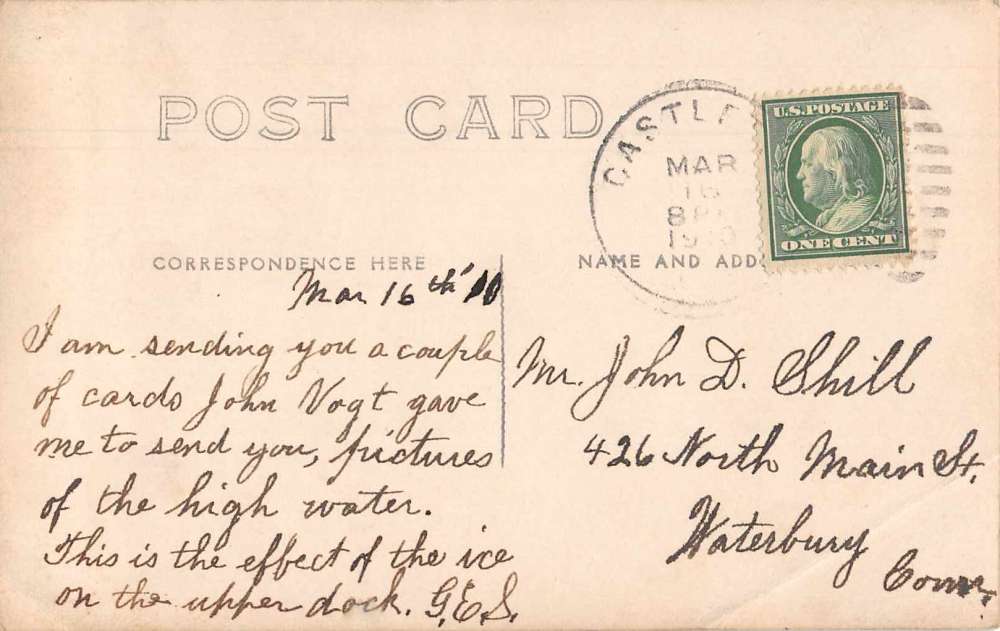 POST CARD
CASTLE
MAR
16
8 P
1910
U.S. POSTAGE
ONE CENT
CORRESPONDENCE HERE
NAME AND ADD
Mar 16th 10
I am sending you a couple
of cards John Vogt gave
me to send you, pictures
of the high water.
This is the effect of the ice
on the upper dock. G.E.S.
Mr. John D. Shill
426 North Main St.
Waterbury
Conn.